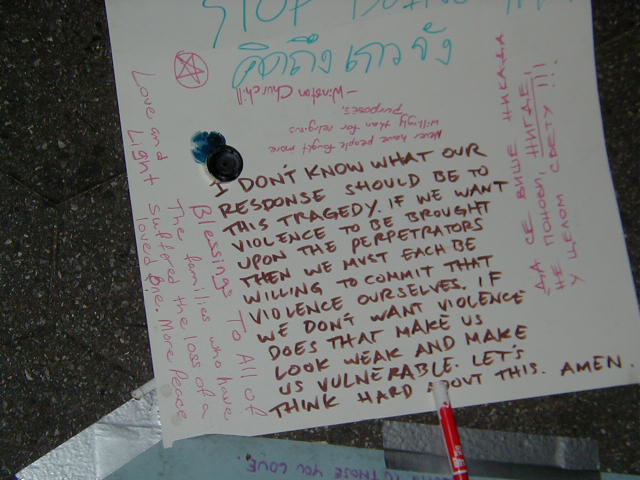 STOP
คิดถึงเกาจัง
Never have people fought more
willingly than for religious
purposes.
-Winston Churchill
Love and
Light
Blessings To All of
The families who have
suffered the loss of a
loved one. More Peace
I DON'T KNOW WHAT OUR
RESPONSE SHOULD BE TO
THIS TRAGEDY. IF WE WANT
VIOLENCE TO BE BROUGHT
UPON THE PERPETRATORS
THEN WE MUST EACH BE
WILLING TO COMMIT THAT
VIOLENCE OURSELVES. IF
WE DON'T WANT VIOLENCE
DOES THAT MAKE US
LOOK WEAK AND MAKE
US VULNERABLE. LET'S
THINK HARD ABOUT THIS. AMEN.
ДА СЕ ВИШЕ НИКАДА
НЕ ПОНОВИ, НИГДЕ,
У ЦЕЛОМ СВЕТУ !!!
TO THOSE YOU LOVE.